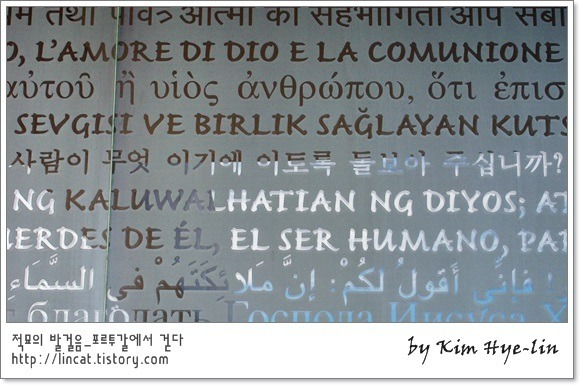 म तथा पवित्र आत्मा की सहभागिता आप सबा
O, L'AMORE DI DIO E LA COMUNIONE
αὐτοῦ ἢ υἱὸς ἀνθρώπου, ὅτι ἐπισ
SEVGISI VE BIRLIK SAĞLAYAN KUTS
사람이 무엇 이기에 이토록 돌보아 주십니까?
NG KALUWALHATIAN NG DIYOS; AT
UERDES DE ÉL, EL SER HUMANO, PAR
! فإِنِّي أَقُولُ لَكُمْ: إِنَّ مَلائِكَتَهُمْ فِي السَّمَاءِ
благодать Господа Иисуса Х
적묘의 발걸음_포르투갈에서 걷다
http://lincat.tistory.com
by Kim Hye-lin